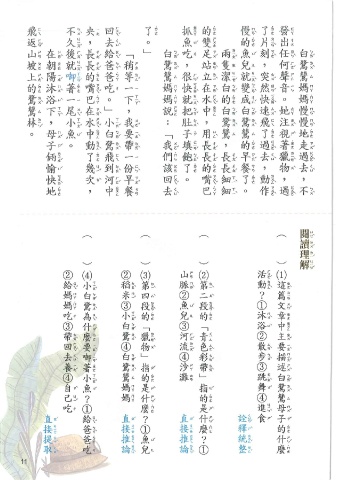 白鷺鷥媽媽慢慢地走過去，不
發出任何聲音。牠注視著獵物，過
了片刻，突然快速飛了過去，動作
慢的魚兒就變成白鷺鷥的早餐了。
兩隻潔白的白鷺鷥，長長細細
的雙足站立在水中，用長長的嘴巴
抓魚吃，很快就把肚子填飽了。
白鷺鷥媽媽說：「我們該回去
了。」
「稍等一下，我要帶一份早餐
回去給爸爸吃。」小白鷺飛到河中
央，長長的嘴巴在水中動了幾次，
不久後就啣著一尾小魚。
在朝陽沐浴下，母子倆愉快地
飛返山坡上的鷺鷥林。
閱讀理解
（ ）(1)這篇文章中主要描述白鷺鷥母子的什麼
活動？①沐浴②散步③跳舞④進食
詮釋統整
（ ）(2)第二段的「青色彩帶」指的是什麼？①
山脈②魚兒③河流④沙灘
直接推論
（ ）(3)第四段的「獵物」指的是什麼？①魚兒
②稻禾③小白鷺④白鷺鷥媽媽
直接推論
（ ）(4)小白鷺為什麼要啣著小魚？①給爸爸吃
②給媽媽吃③帶回去養④自己吃
直接提取
11